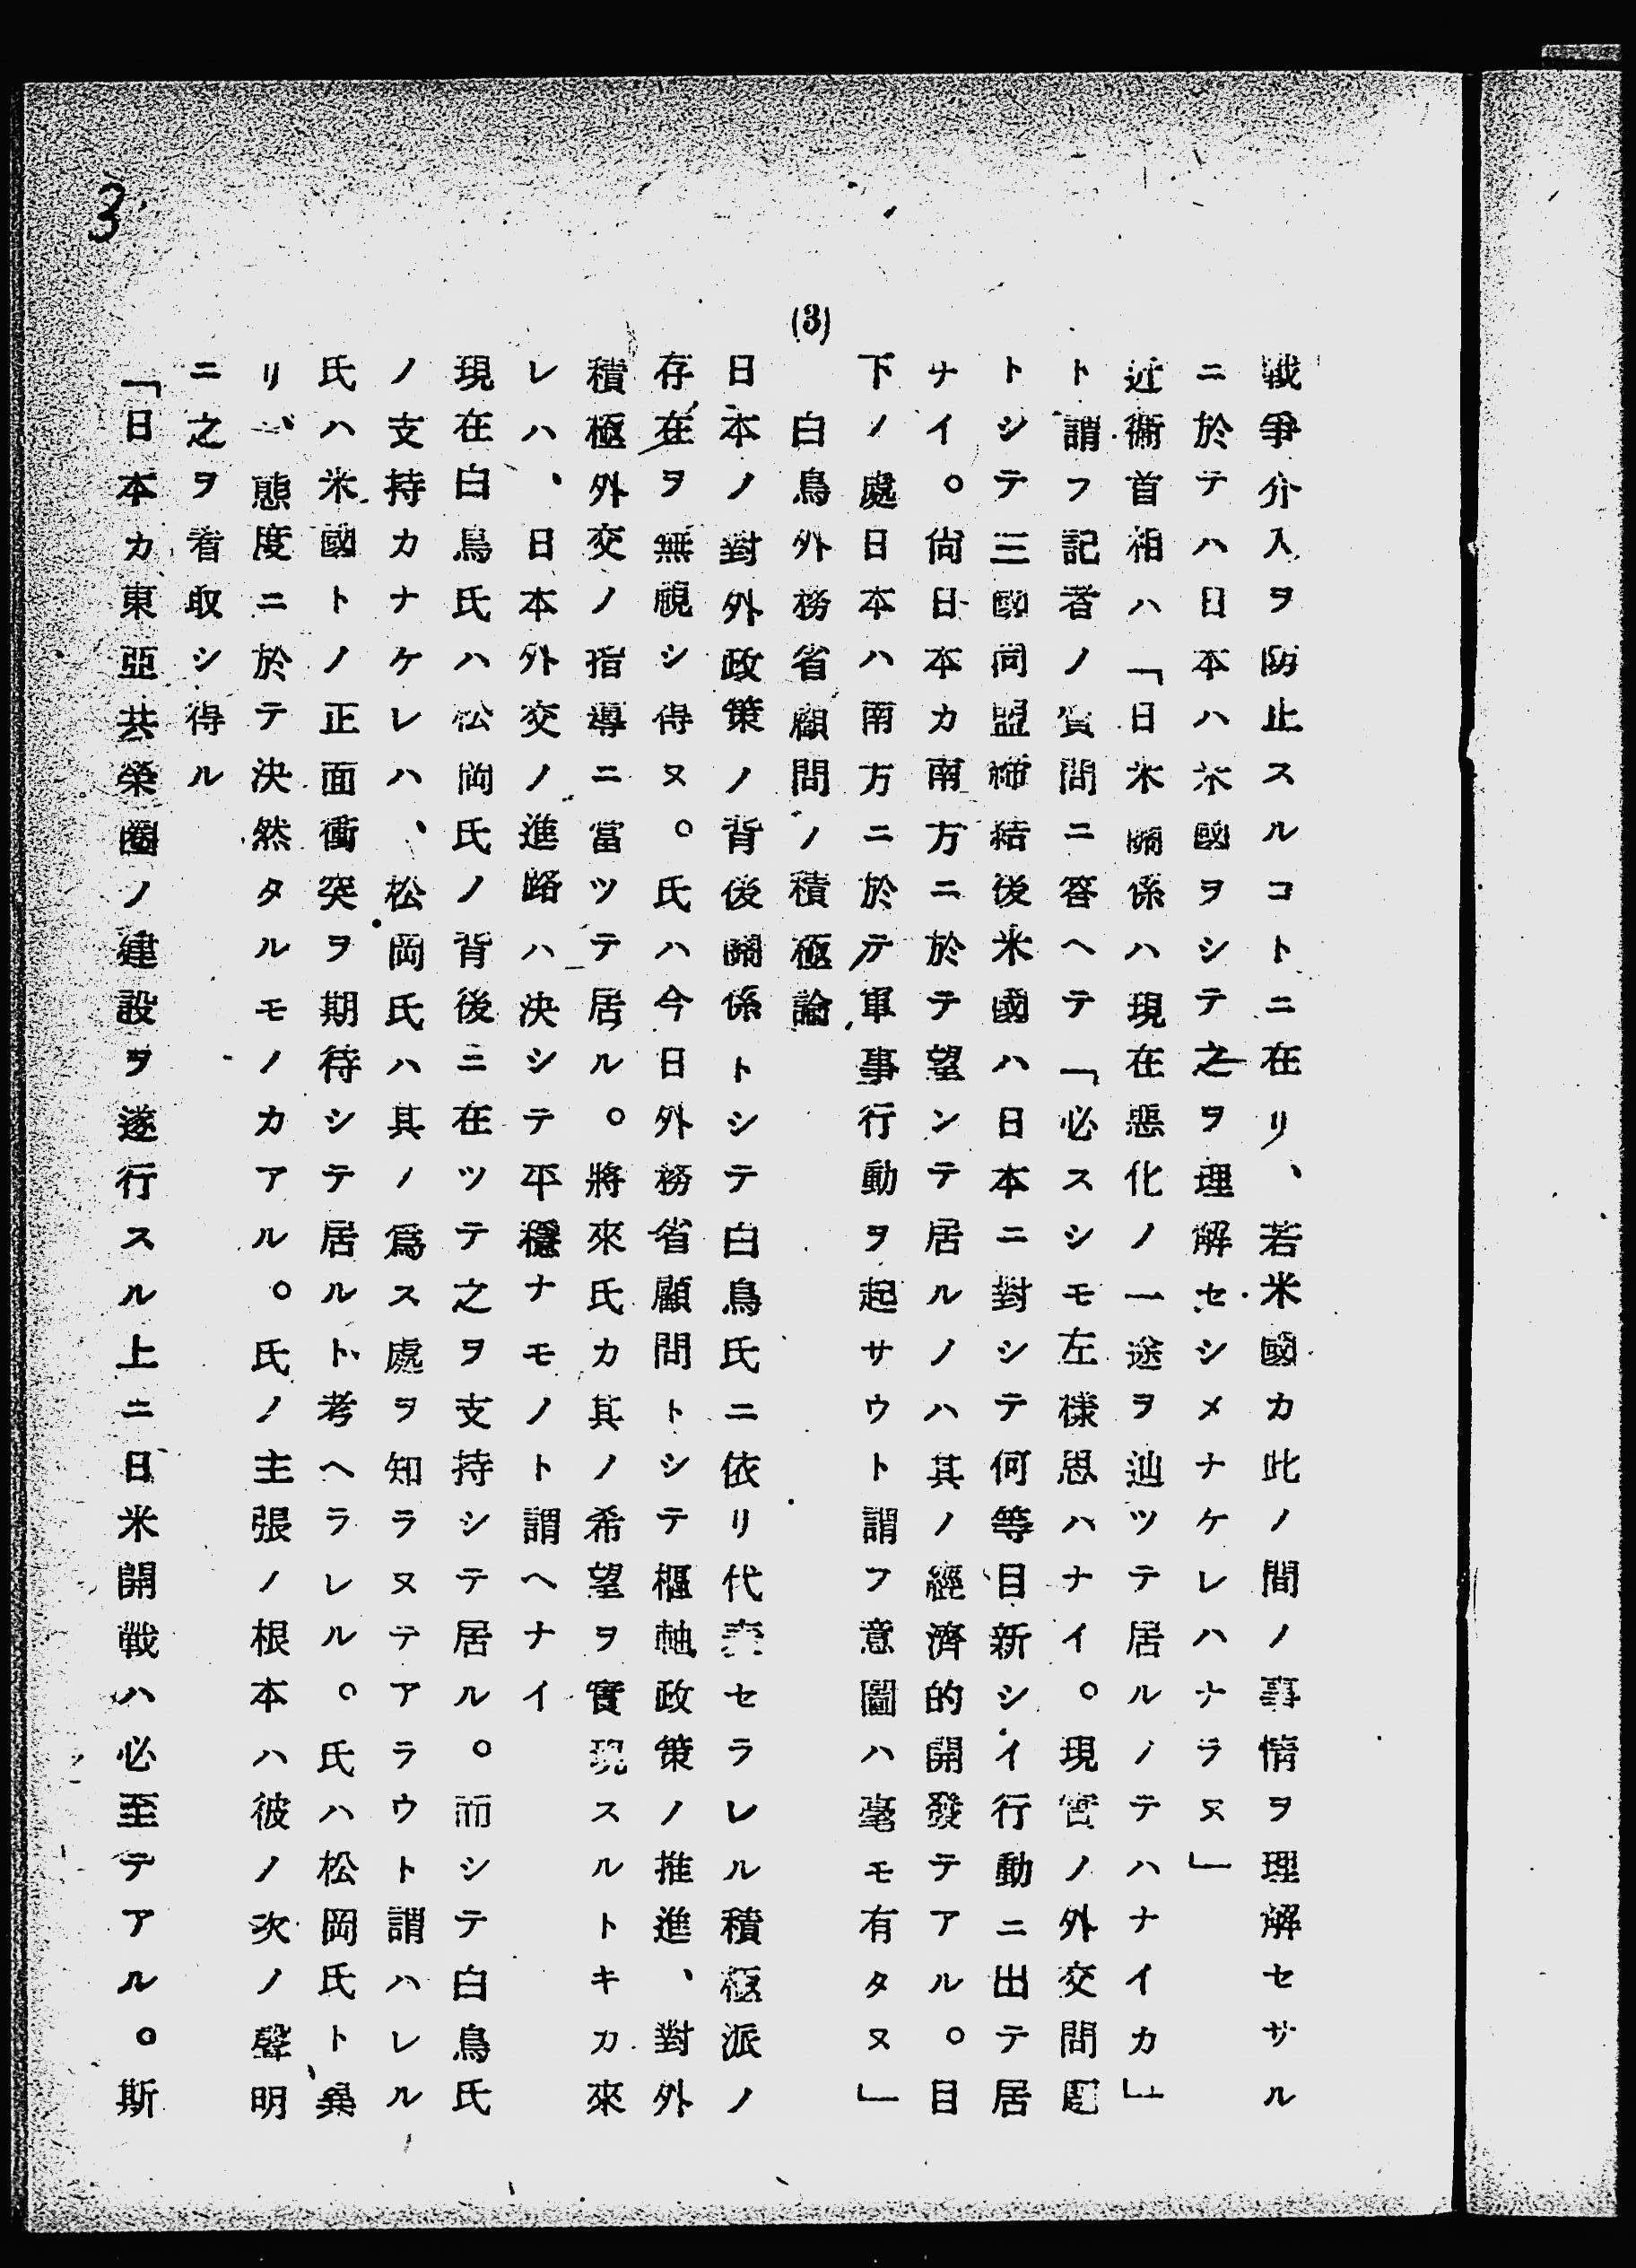 3
戰爭介入ヲ防止スルコトニ在リ、若米國カ此ノ間ノ事情ヲ理解セザル
ニ於テハ日本ハ米國ヲシテ之ヲ理解セシメナケレハナラヌ」
近衞首相ハ「日米關係ハ現在惡化ノ一途ヲ辿ツテ居ルノテハナイカ」
ト謂フ記者ノ質問ニ答ヘテ「必スシモ左樣思ハナイ。現實ノ外交問題
トシテ三國同盟締結後米國ハ日本ニ對シテ何等目新シイ行動ニ出テ居
ナイ。尚日本カ南方ニ於テ望ンテ居ルノハ其ノ經濟的開發テアル。目
下ノ處日本ハ南方ニ於テ軍事行動ヲ起サウト謂フ意圖ハ毫モ有タヌ」
(3) 白鳥外務省顧問ノ積極論
日本ノ對外政策ノ背後關係トシテ白鳥氏ニ依リ代表セラレル積極派ノ
存在ヲ無視シ得ヌ。氏ハ今日外務省顧問トシテ樞軸政策ノ推進、對外
積極外交ノ指導ニ當ツテ居ル。將來氏カ其ノ希望ヲ實現スルトキカ來
レハ、日本外交ノ進路ハ決シテ平穩ナモノト謂ヘナイ
現在白鳥氏ハ松岡氏ノ背後ニ在ツテ之ヲ支持シテ居ル。而シテ白鳥氏
ノ支持カナケレハ、松岡氏ハ其ノ爲ス處ヲ知ラヌテアラウト謂ハレル
氏ハ米國トノ正面衝突ヲ期待シテ居ルト考ヘラレル。氏ハ松岡氏ト異
リ、態度ニ於テ決然タルモノカアル。氏ノ主張ノ根本ハ彼ノ次ノ聲明
ニ之ヲ看取シ得ル
「日本カ東亞共榮圈ノ建設ヲ遂行スル上ニ日米開戰ハ必至テアル。斯